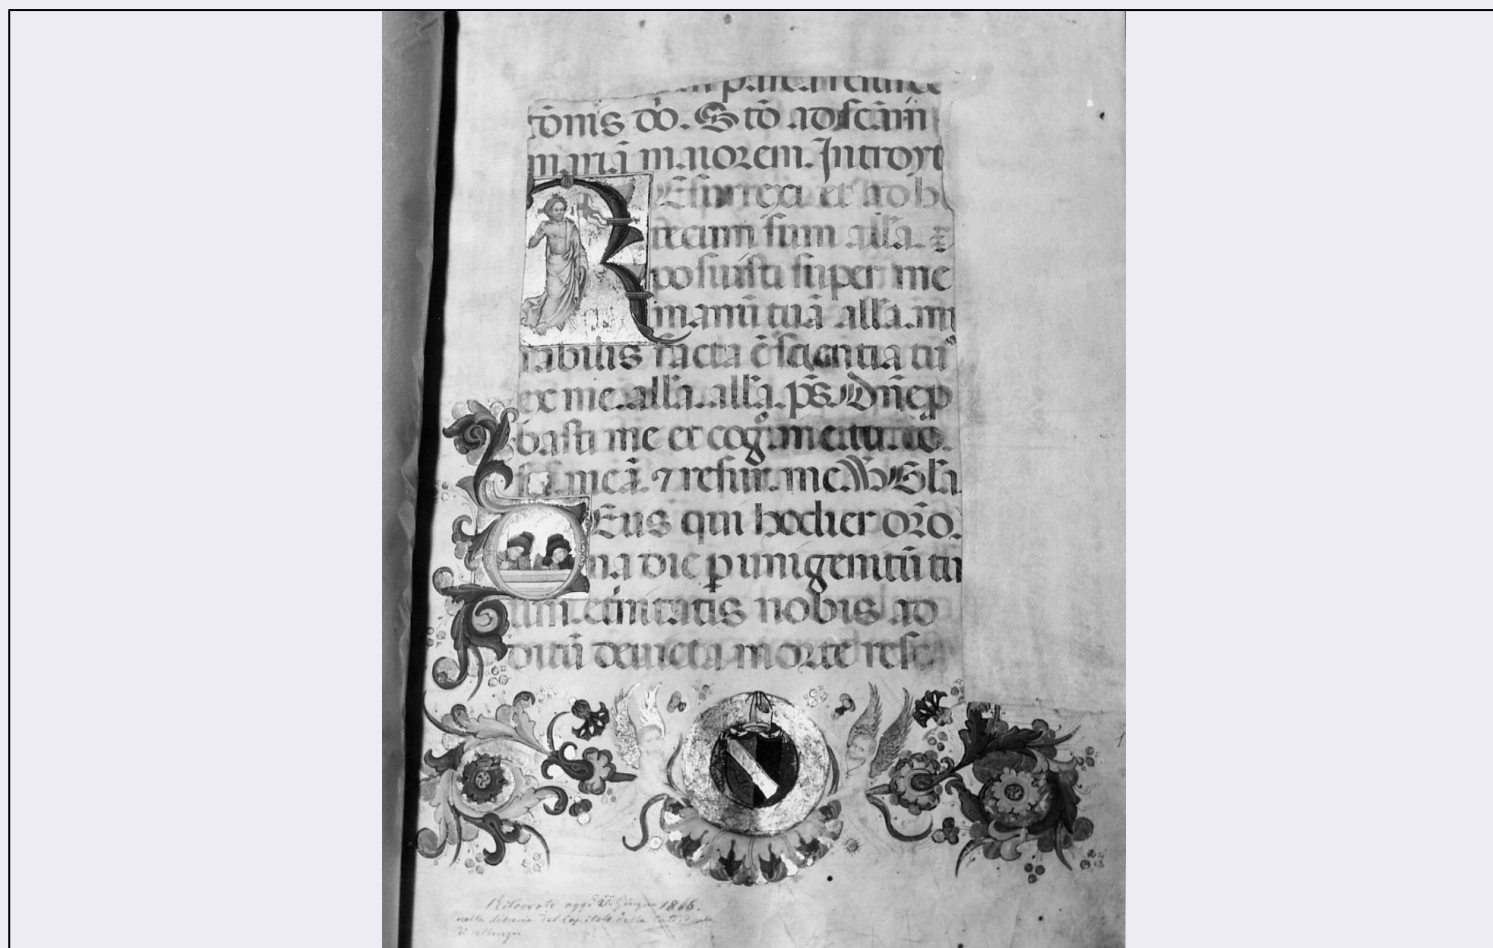 tōnis dō. Stō ad scām
mariā maiorem. Introyt
REsurrexi et ad h
tecum sum alla. z
posuisti super me
manū tuā alla. mi
rabilis facta ē scientia tu
ex me. alla. alla. p̄s. Dn̄e p
basti me et cog
meā. ⁊ resur. mē. V Gla
DEus qui hodier
na die p unigenitū tu
um etnitatis nobis ad
ditū devicta morte res
Ritrovato oggi Giugno 1866.
nella del Capitolo della